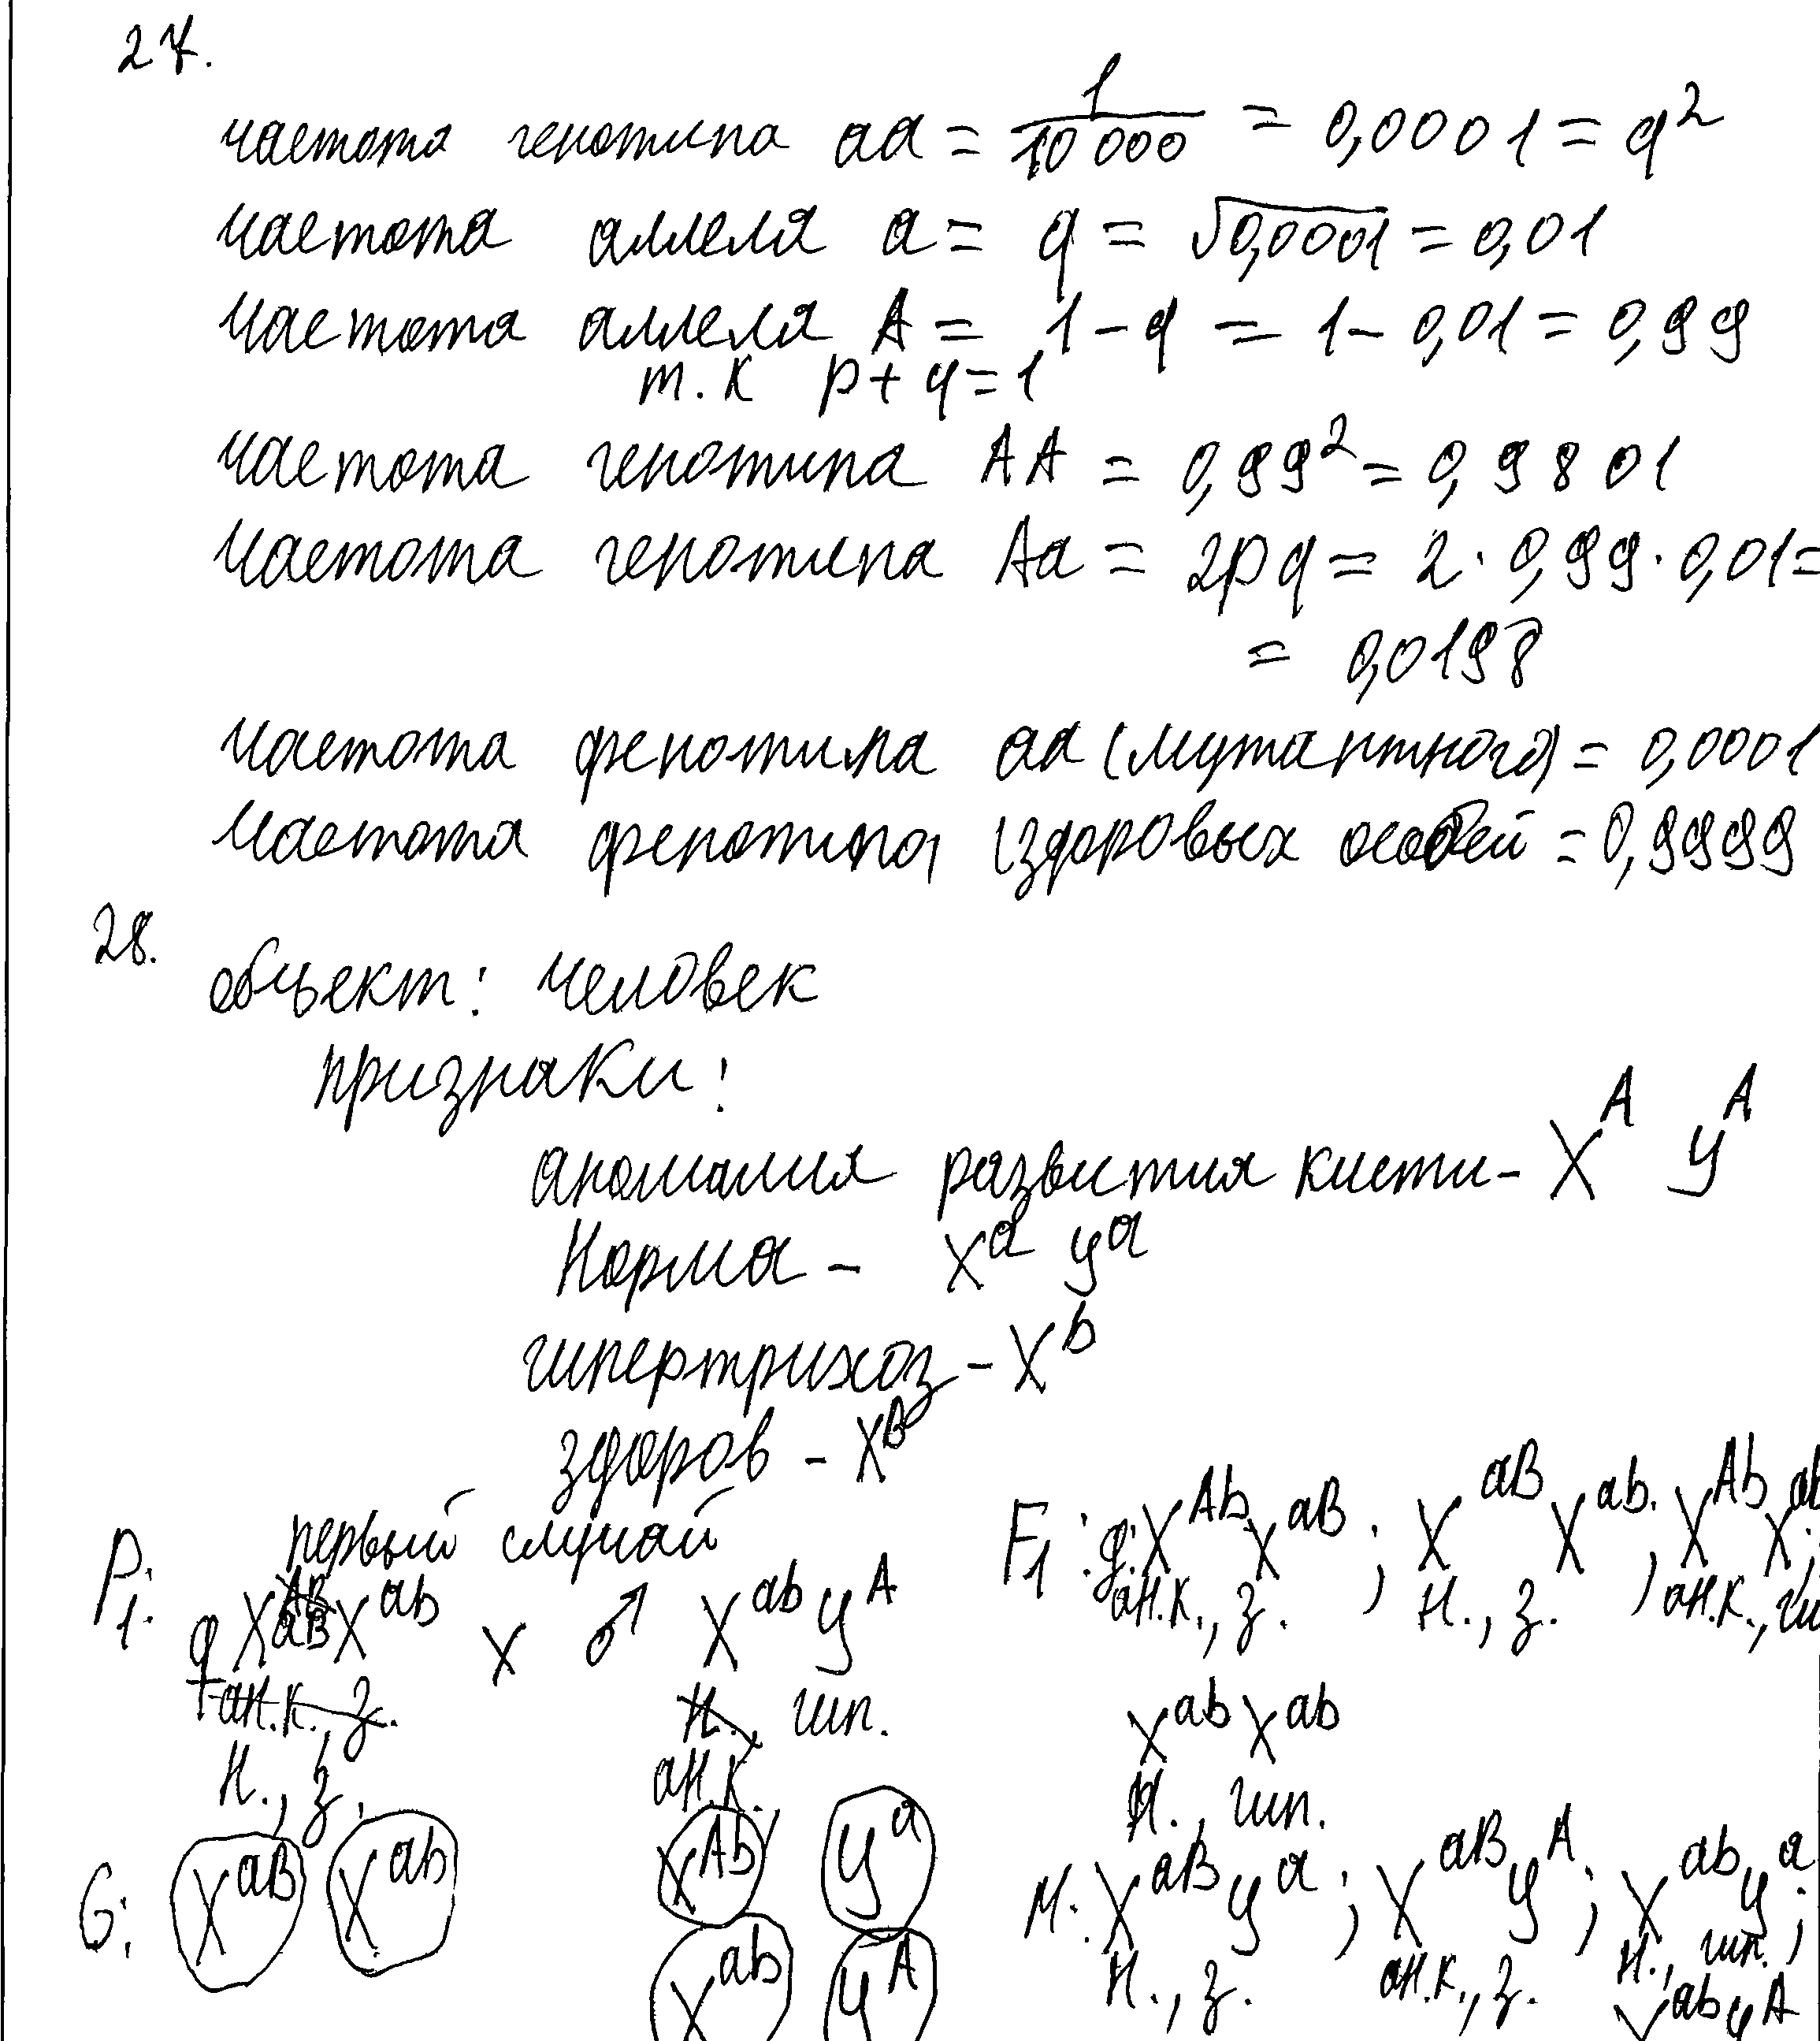 27.
частота генотипа aa = 1/10 000 = 0,0001 = q²
частота аллеля a = q = √0,0001 = 0,01
частота аллеля A = 1 - q = 1 - 0,01 = 0,99
т.к p + q = 1
частота генотипа AA = 0,99² = 0,9801
частота генотипа Aa = 2pq = 2 · 0,99 · 0,01 =
= 0,0198
частота фенотипа aa (мутантного) = 0,0001
частота фенотипа (здоровых особей = 0,9999
28.
объект: человек
признаки:
аномалия развития кисти - X^A У^A
Норма - X^a У^a
гипертрихоз - X^b
здоров - X^B
первый случай
P₁: ♀ X^aB X^ab × ♂ X^ab У^A
ан.к., з. н., гип.
н., з. ан.к.,
G: X^aB X^ab X^Ab У^a
X^ab У^A
F₁: ♀: X^Ab X^aB ; X^aB X^ab ; X^Ab X^ab ;
ан.к., з. ; н., з. , ан.к., ги
X^ab X^ab
н., гип.
М: X^aB У^a ; X^aB У^A ; X^ab У^a ;
н., з. ан.к., з. н., гип.
X^ab У^A